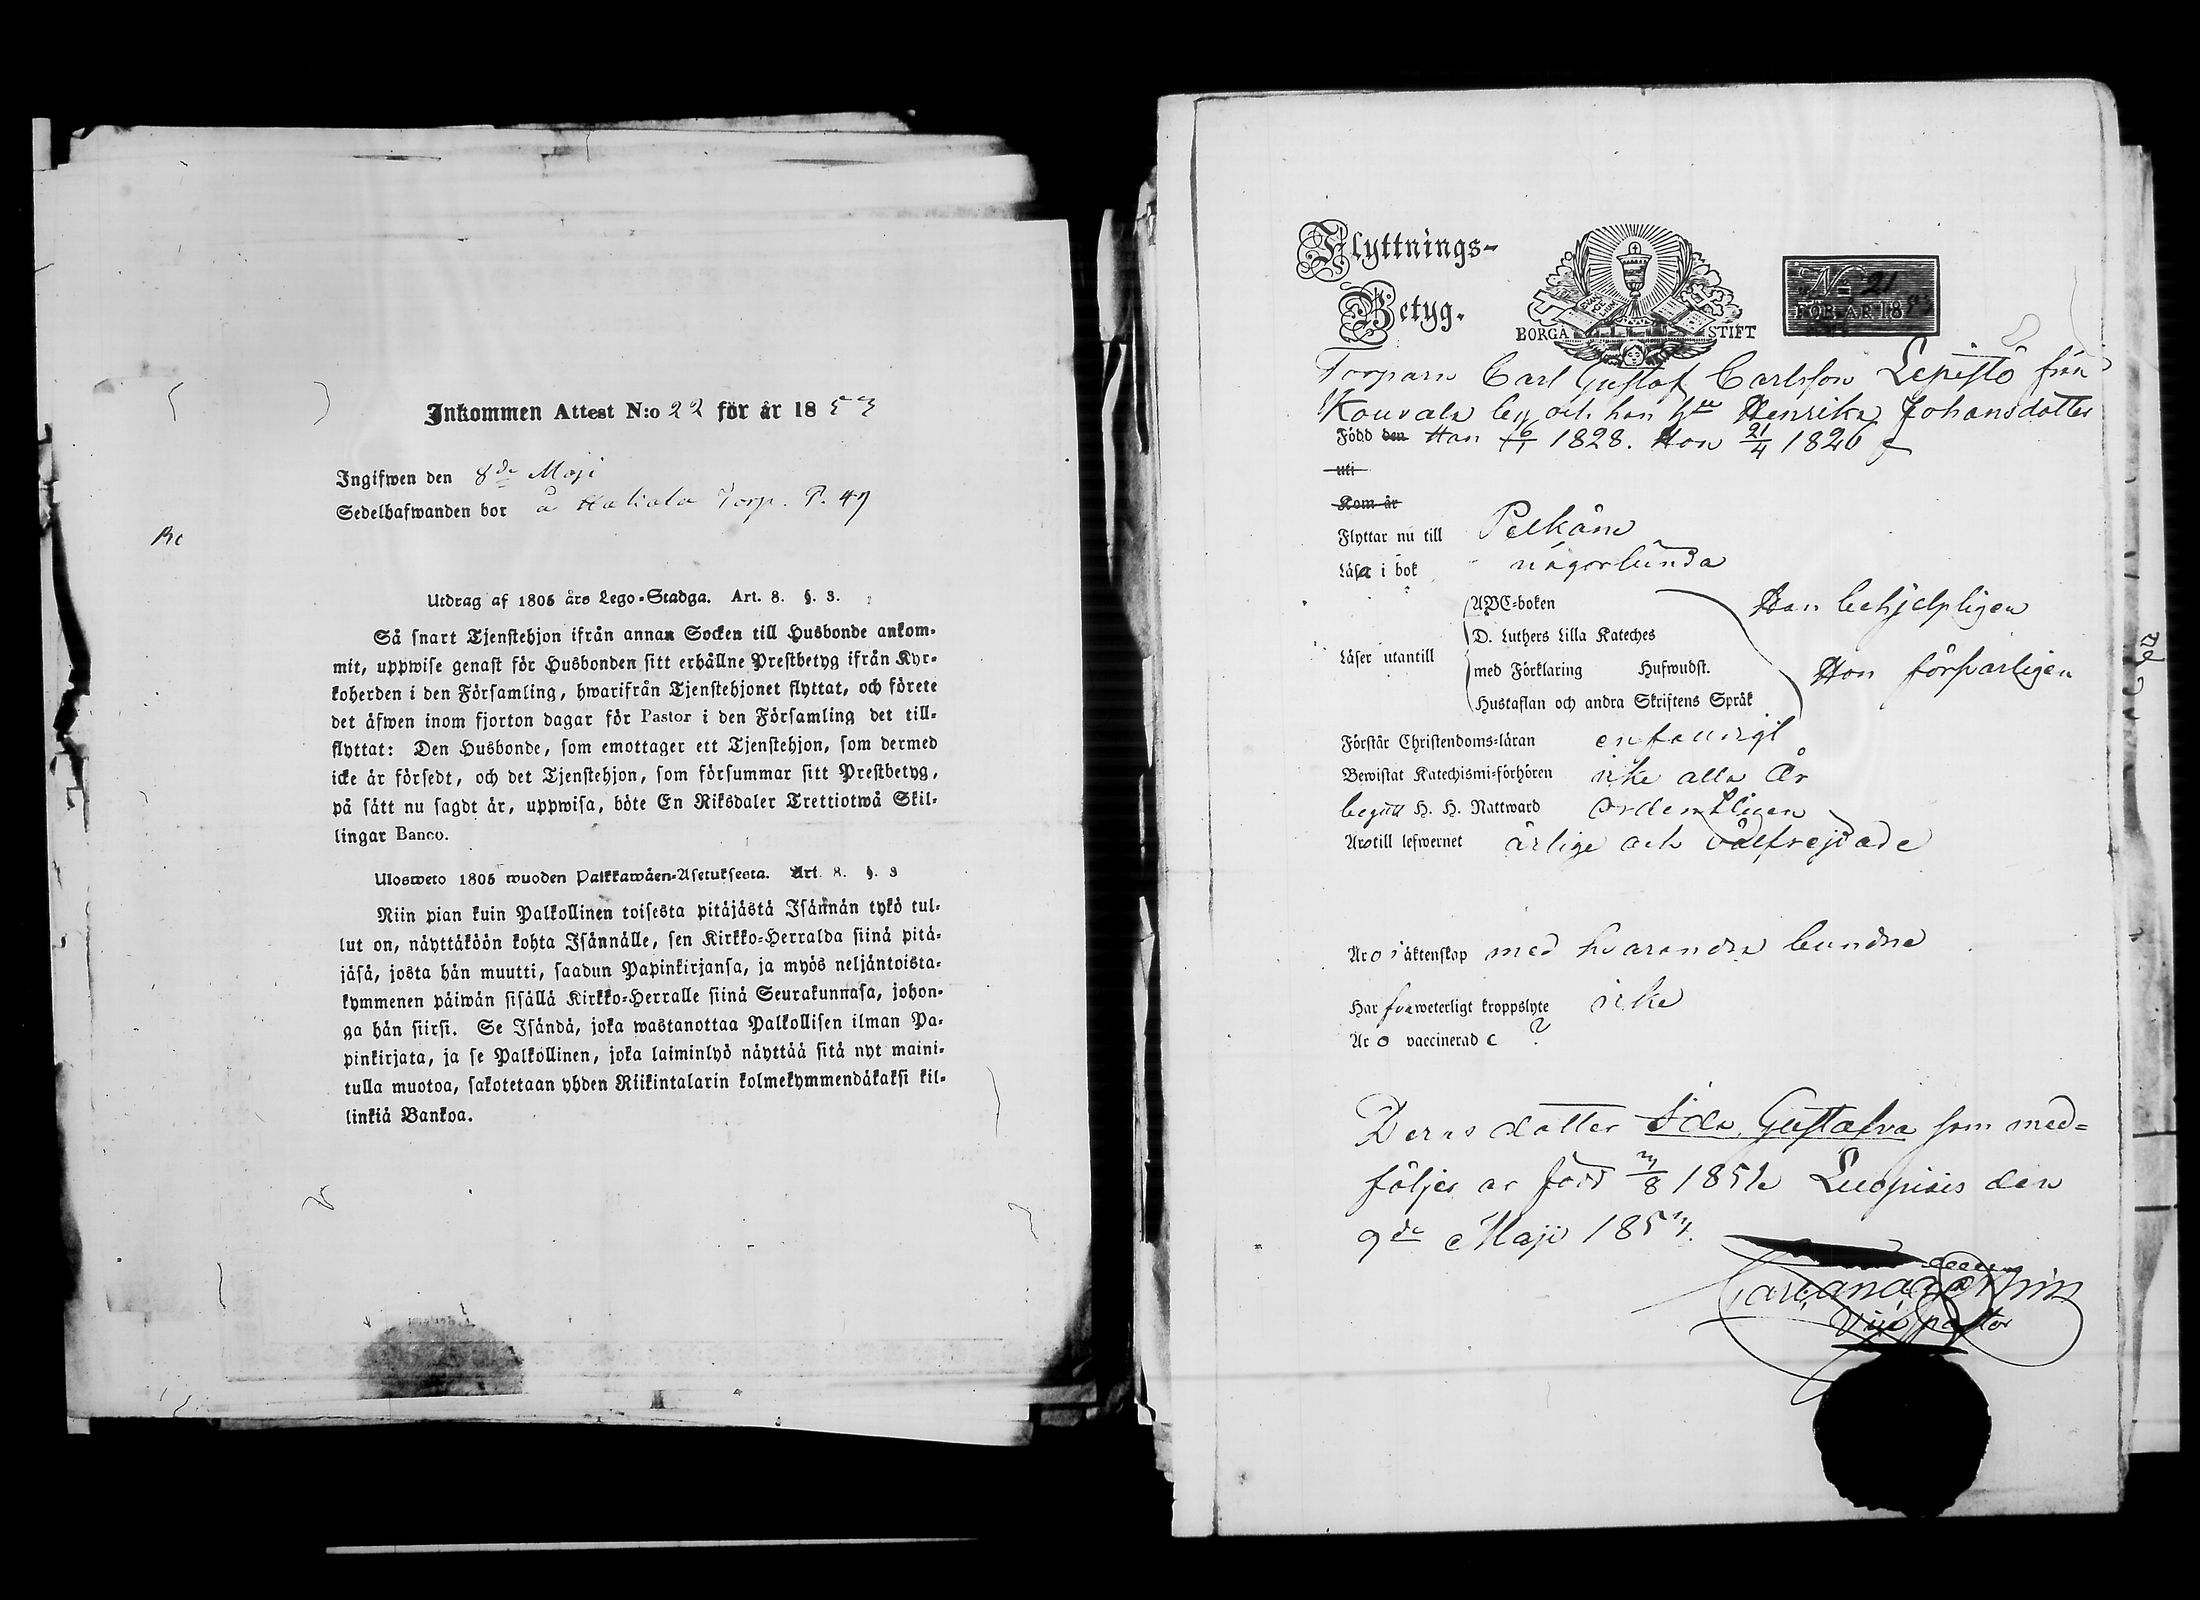 Inkommen Attest N:o 22 för år 1853
Ingifwen den 8de Maji
Sedelhafwanden bor å Torp. P. 47
Utdrag af 1805 års Lego-Stadga. Art. 8. §. 3.
Så snart Tjenstehjon ifrån annan Socken till Husbonde ankom-
mit, uppwise genast för Husbonden sitt erhållne Prestbetyg ifrån Kyr-
koherden i den Församling, hwarifrån Tjenstehjonet flyttat, och förete
det äfwen inom fjorton dagar för Pastor i den Församling det till-
flyttat: Den Husbonde, som emottager ett Tjenstehjon, som dermed
icke är försedt, och det Tjenstehjon, som försummar sitt Prestbetyg,
på sätt nu sagdt är, uppwisa, böte En Riksdaler Trettiotwå Skil-
lingar Banco.
Ulosweto 1805 wuoden Palkkawäen-Asetuksesta. Art. 8. §. 3
Niin pian kuin Palkollinen toisesta pitäjästä Isännän tykö tul-
lut on, näyttäköön kohta Isännälle, sen Kirkko-Herralda siinä pitä-
jäsä, josta hän muutti, saadun Papinkirjansa, ja myös neljäntoista-
kymmenen päiwän sisällä Kirkko-Herralle siinä Seurakunnasa, johon-
ga hän siirsi. Se Isändä, joka wastanottaa Palkollisen ilman Pa-
pinkirjata, ja se Palkollinen, joka laiminlyö näyttää sitä nyt maini-
tulla muotoa, sakotetaan yhden Riikintalarin kolmekymmendäkaksi kil-
linkiä Bankoa.
Flyttnings-
Betyg.
BORGÅ STIFT
No 21
FÖR ÅR 1853
Torparn Carl Gustaf Carlsson Lepistö från
Kouvala by och han hu Henrika Johansdotter
Född den Han 6/1 1828. Hon 21/4 1826
uti
Kom år
Flyttar nu till Pelkäne
Läsa i bok någorlunda
Läser utantill
ABC-boken
D. Luthers Lilla Kateches
med Förklaring Hufwudst.
Hustaflan och andra Skriftens Språk
Han behjelpligen
Hon försvarligen
Förstår Christendoms-läran enfaldigt
Bewistat Katechismi-förhören icke alla År
begått H. H. Nattward Ordentligen
Äro till lefwernet ärlige och välfrejdade
Äro i äktenskap med hvarandra bundne
Har fosweterligt kroppslyte icke
Äro vaccinerade ?
Deras dotter Ida Gustafva som med-
följer är född 1851. Luopiois den
9de Maji 1853.
Vice pastor